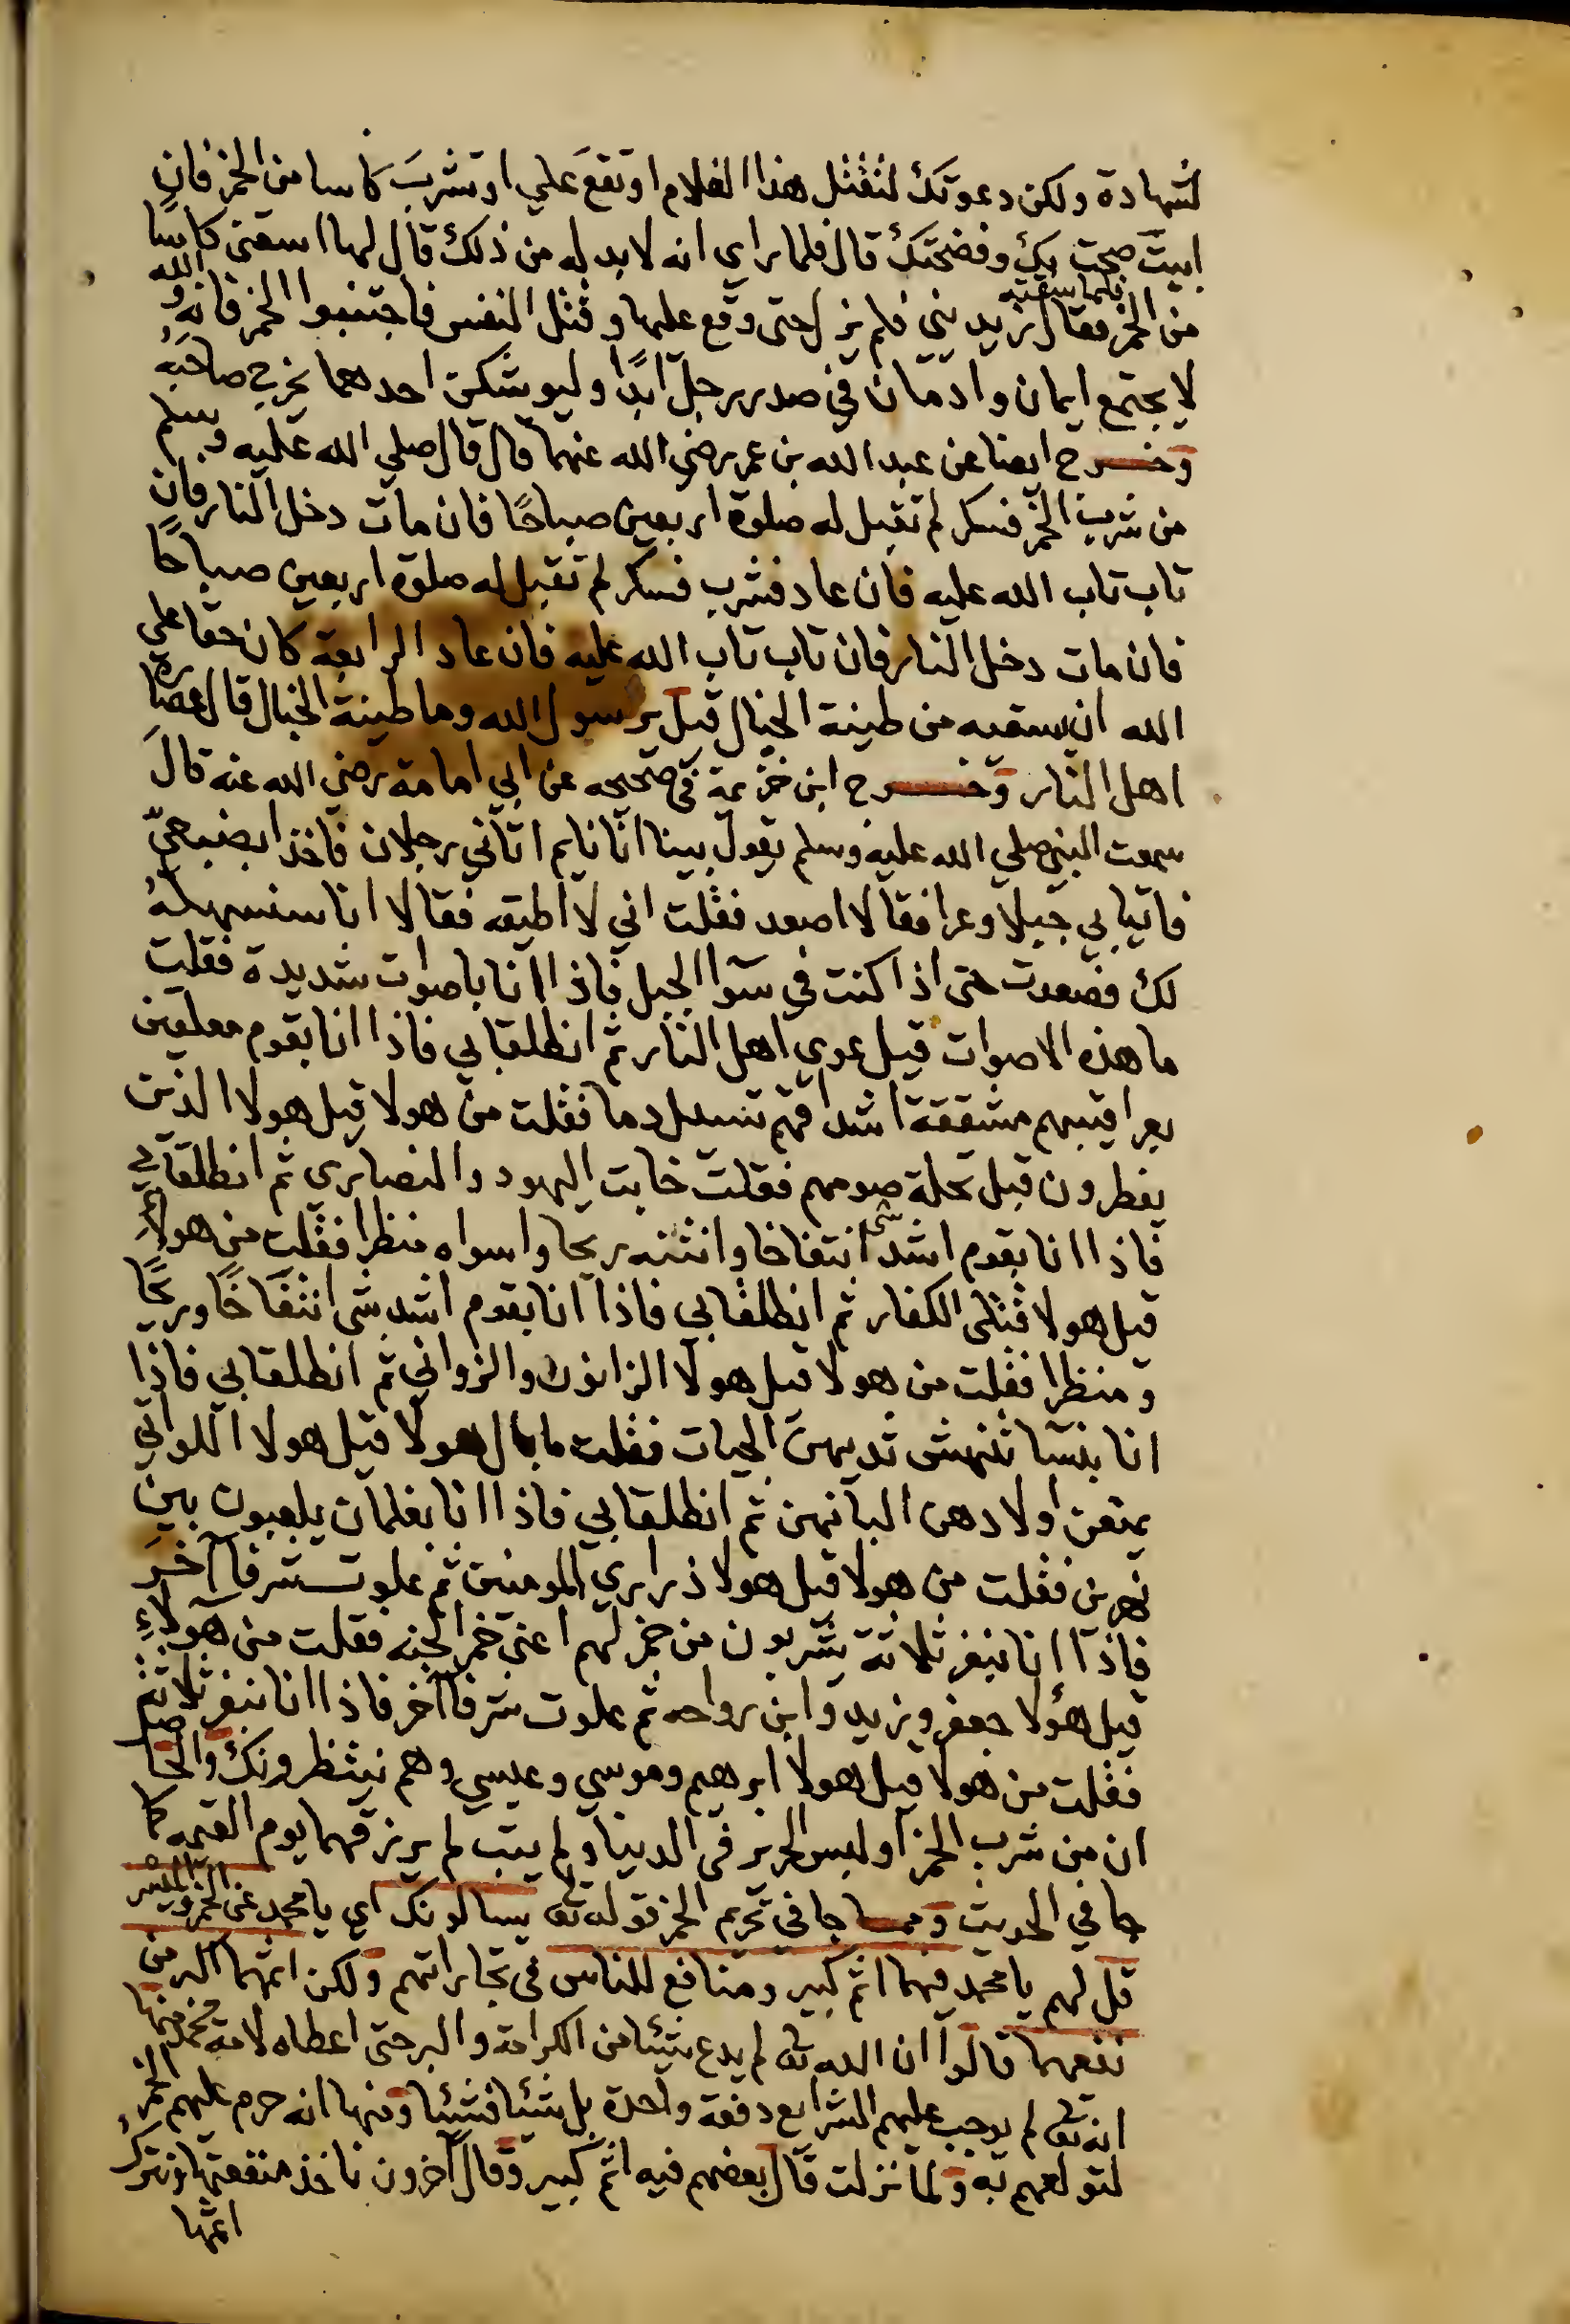 لشهادة ولكن دعوتك لتقتل هذا الغلام او تقع علي او تشرب كاسا من الخمر فان
ابيت صحت بك وفضحتك قال فلما راي انه لابد له من ذلك قال لها اسقني كاسًا
من الخمر فلما سقته فقال زيديني فلم يزل حتى وقع عليها وقتل النفس فاجتنبوا الخمر فانه والله
لا يجتمع ايمان وادمان في صدر رجل ابدًا وليوشكن احدهما يخرج صاحبه
وخرج ايضا عن عبد الله بن عمر رضى الله عنهما قال قال صلي الله عليه وسلم
من شرب الخمر فسكر لم تقبل له صلوة اربعين صباحًا فان مات دخل النار فان
تاب تاب الله عليه فان عاد فشرب فسكر لم تقبل له صلوة اربعين صباحًا
فان مات دخل النار فان تاب تاب الله عليه فان عاد الرابعة كان حقا علي
الله ان يسقيه من طينة الخبال قيل يرسول الله وما طينة الخبال قال عصارة
اهل النار وخرج ابن خزيمة في صحيحه عن ابي امامة رضى الله عنه قال
سمعت النبى صلي الله عليه وسلم يقول بينا انا نايم اتاني رجلان فاخذا بضبعيّ
فاتيا بي جبلا وعرا فقالا اصعد فقلت اني لا اطيقه فقالا انا سنسهله
لك فصعدت حتى اذا كنت في سوا الجبل فاذا انا باصوات شديدة فقلت
ما هذه الاصوات قيل عوي اهل النار ثم انطلقا بي فاذا انا بقوم معلقين
بعراقيبهم مشققة اشداقهم تسيل دما فقلت من هولا قيل هولا الذين
يفطرون قبل تحلة صومهم فقلت خابت اليهود والنصارى ثم انطلقا بي
فاذا انا بقوم اشد شى انتفاخا وانتنه ريحا واسواه منظرا فقلت من هولاء
قيل هولا قتلى الكفار ثم انطلقا بي فاذا انا بقوم اشد شى انتفاخًا وريحًا
ومنظرا فقلت من هولا قيل هولا الزانون والزواني ثم انطلقا بي فاذا
انا بنسا تنهش ثديهن الحيات فقلت ما بال هولا قيل هولا اللواتي
يمنعن اولادهن البانهن ثم انطلقا بي فاذا انا بغلمان يلعبون بين
نهرين فقلت من هولا قيل هولا ذراري المومنين ثم علوت شرفا آخر
فاذا انا بنفر ثلاثة يشربون من خمر لهم اعني خمر الجنه فقلت من هولاء
قيل هؤلا جعفر وزيد وابن رواحه ثم علوت شرفا آخر فاذا انا بنفر ثلاثة
فقلت من هولا قيل هولا ابرهيم وموسي وعيسي وهم ينتظرونك والحاصل
ان من شرب الخمر او لبس الحرير في الدنيا ولم يتب لم يرزقهما يوم القيمه كما
جا في الحديث ومما جا في تحريم الخمر قوله تعا يسالونك اي يا محمد عن الخمر والميسر
قل لهم يا محمد فيهما اثم كبير ومنافع للناس في تجاراتهم ولكن اثمهما اكبر من
نفعهما قالوا ان الله تعا لم يدع شيئا من الكرامة والبر حتى اعطاه لامة محمد منها
انه تعا لم يوجب عليهم الشرايع دفعة واحدة بل شيئا فشيئا ومنها انه حرم عليهم الخمر
لتولعهم به ولما نزلت قال بعضهم فيه اثم كبير وقال آخرون ناخذ منفعتها ونترك
اثمها